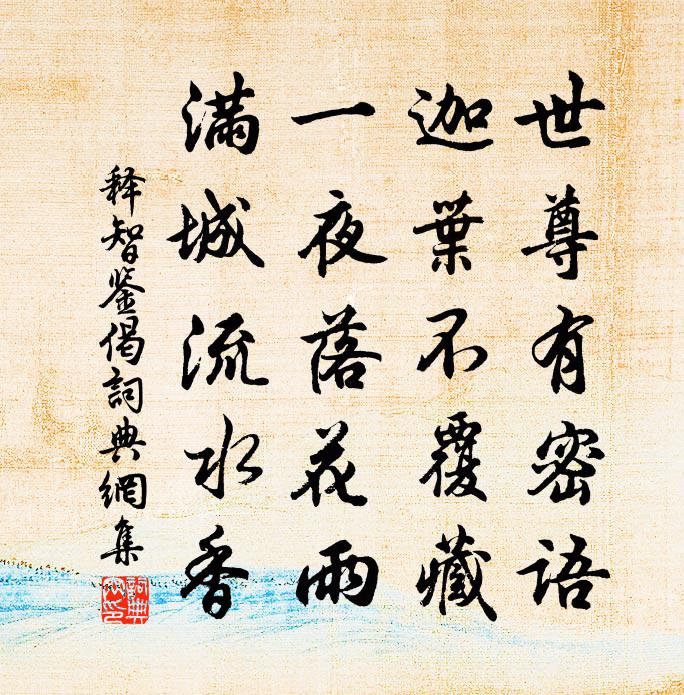 世尊有密語
迦葉不覆藏
一夜落花雨
滿城流水香
释智鉴偈詞典網集